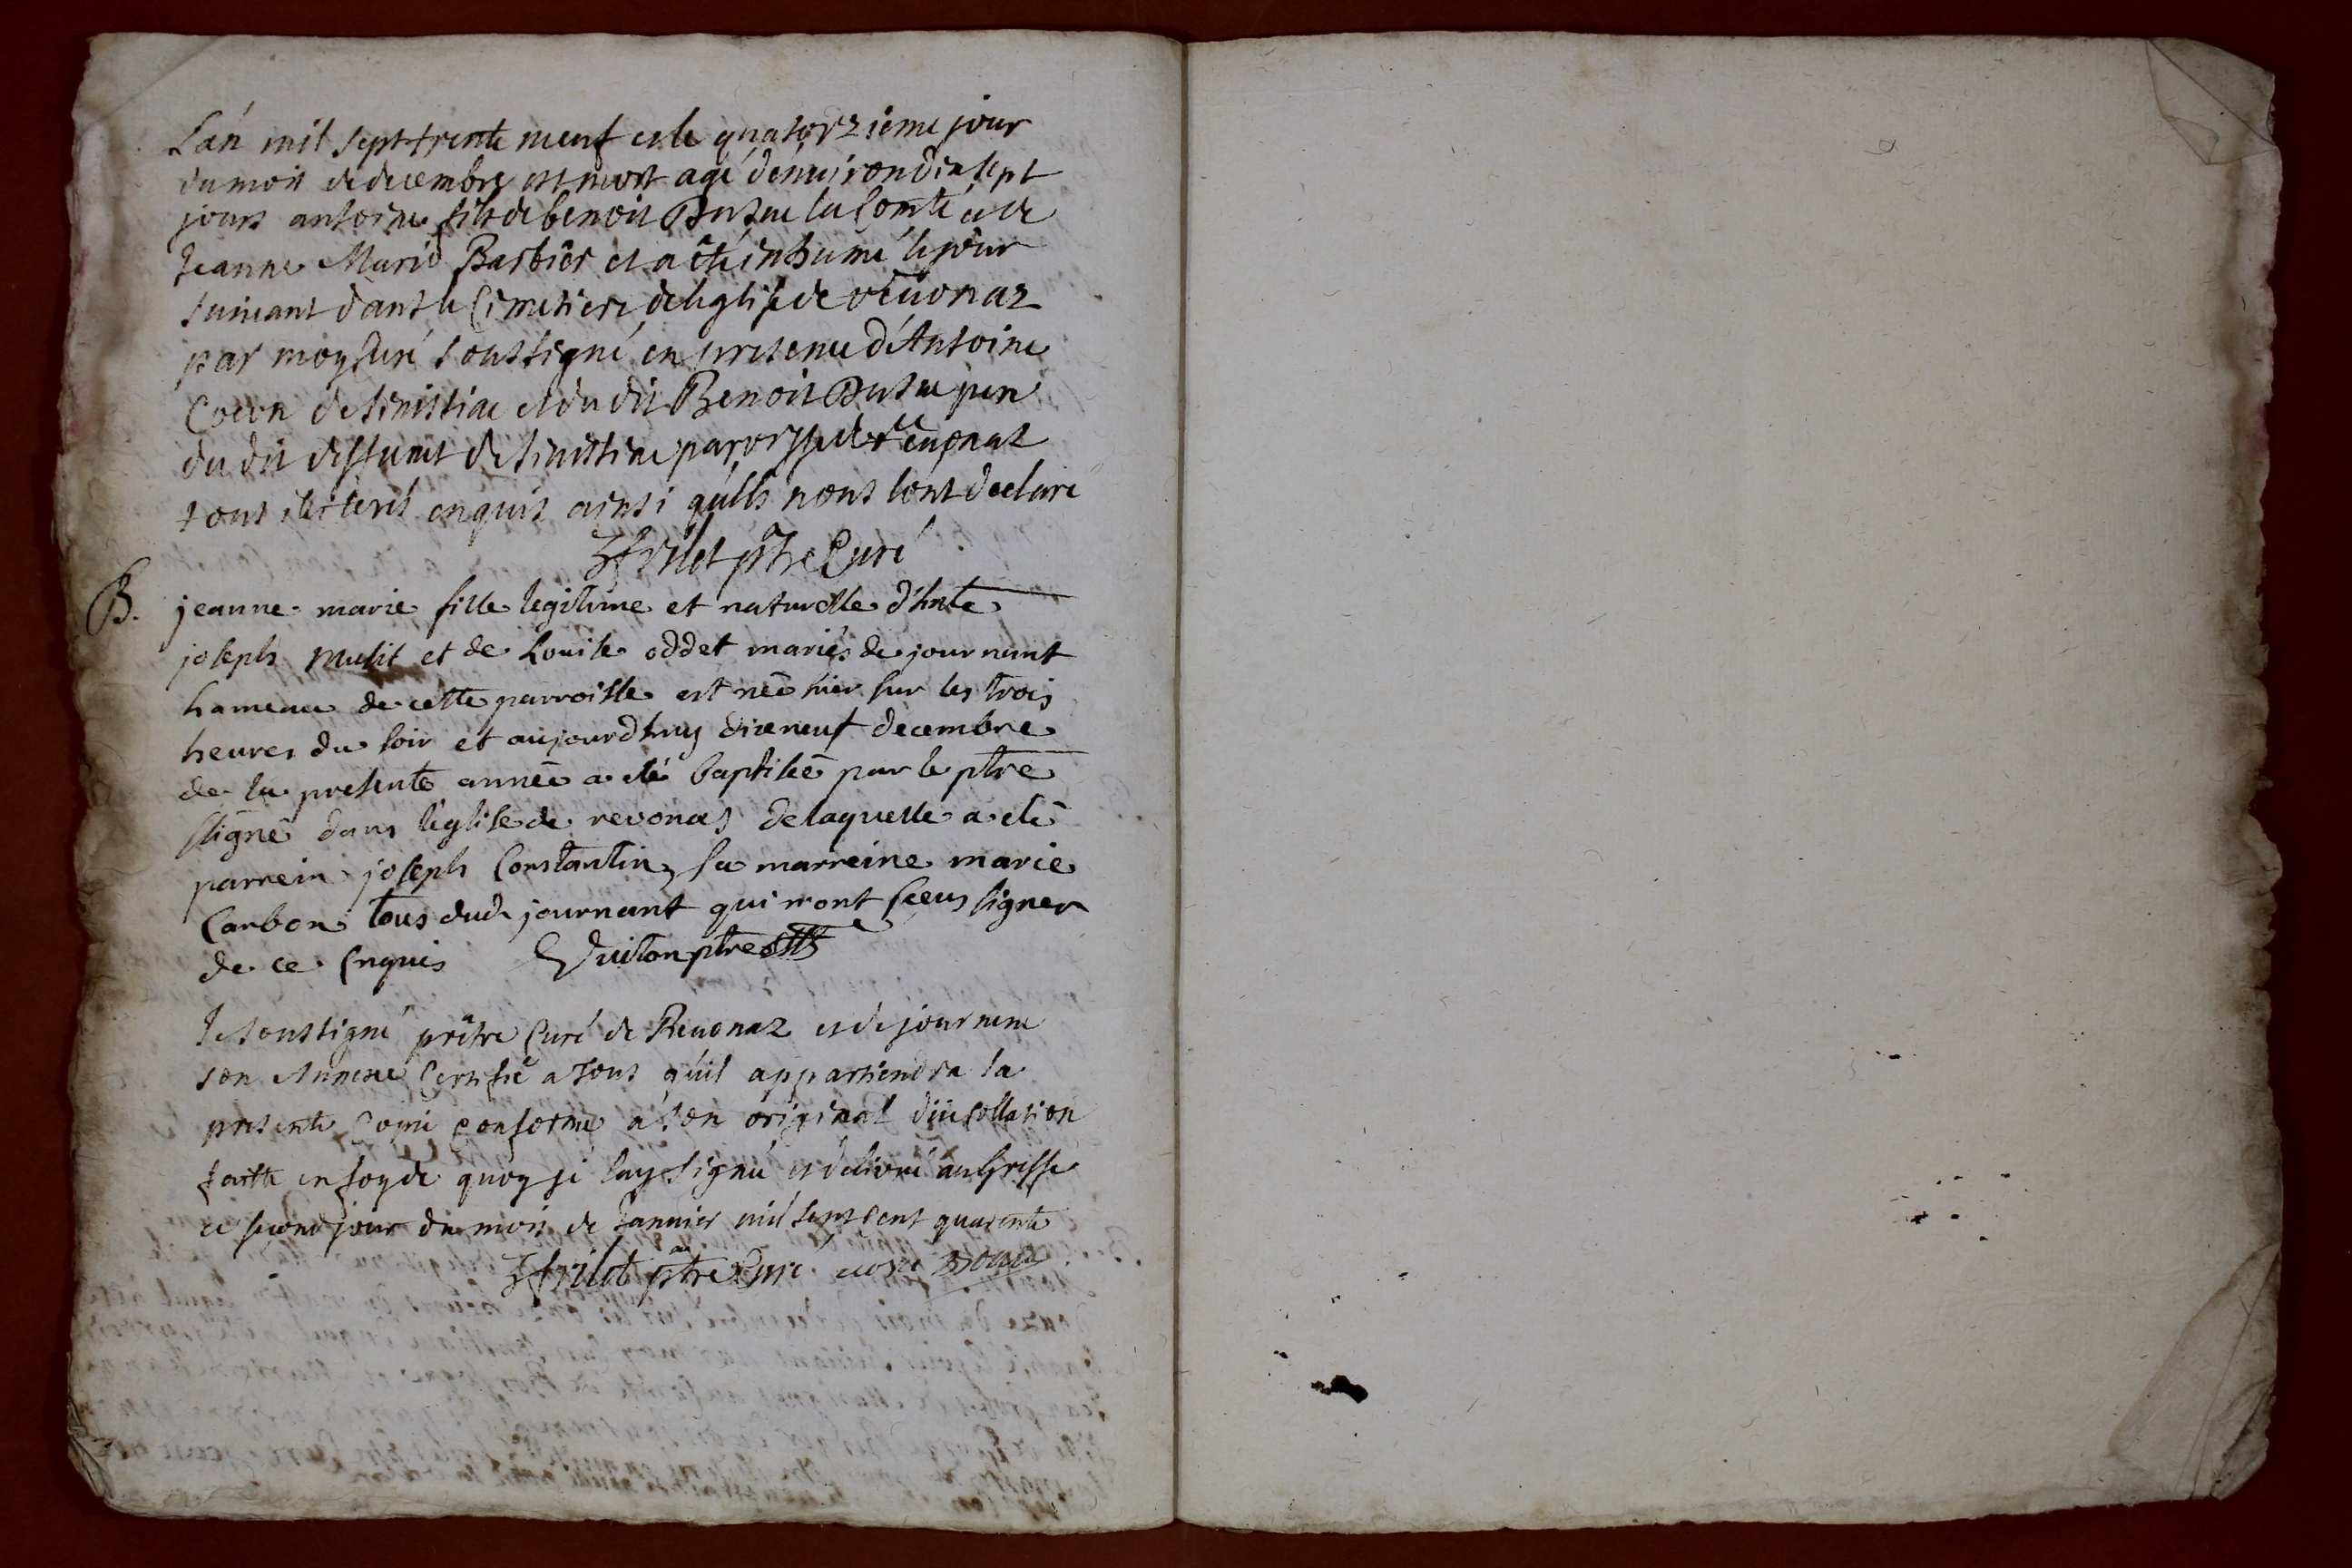 Lan mil sept trente neuf et le quatorzieme jour
du mois de decembre est mort agé denviron dix sept
jours antoine fils de benoit Dutue la Comté et de
Jeanne Marie Barbier et a été inhumé le jour
suivant dans le Cimetiere de leglise de revonaz
par moy Curé soussigné en presence d'Antoine
de Sinissiac et du dit Benoit Dutue pere
du dit deffunt de Sinissiac paroisse de revonaz
tous illiterés enquis ainsi quils nous lont declaré
frilet ptre Curé
B. jeanne marie fille legitime et naturelle d'hnte
joseph Mulit et de Louise oddet mariés de journant
hameau de cette parroisse est née hier sur les trois
heures du soir et aujourdhuy dixneuf decembre
de la presente année a eté baptisée par le ptre
ssigné dans l'eglise de revonas de laquelle a eté
parrein joseph Constantin, sa marreine marie
Carbon tous dud. journant qui n'ont sceus signer
de ce Enquis Vuiton ptre
Je soussigné prêtre Curé de Revonaz et de journenc
son Annexe Certifie a tous quil appartiendra la
presente Copie conforme a son original düe collation
faitte en foy de quoy je lay signé et delivré au Greffe
ce second jour du mois de Janvier mil sept cent quarente
frilet ptre Curé